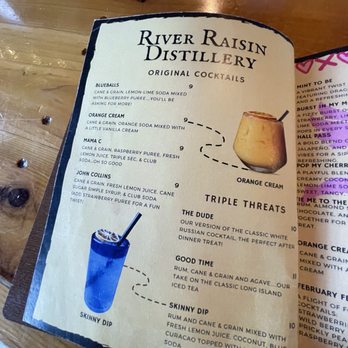 RIVER RAISIN
DISTILLERY
ORIGINAL COCKTAILS
BLUEBALLS 9
CANE & GRAIN, LEMON-LIME SODA MIXED
WITH BLUEBERRY PUREE...YOU'LL BE
ASKING FOR MORE!
ORANGE CREAM 9
CANE & GRAIN, ORANGE SODA MIXED WITH
A LITTLE VANILLA CREAM
MAMA C 9
CANE & GRAIN, RASPBERRY PUREE, FRESH
LEMON JUICE, TRIPLE SEC, & CLUB
SODA...OH SO GOOD
JOHN COLLINS 9
CANE & GRAIN, FRESH LEMON JUICE, CANE
SUGAR SIMPLE SYRUP, & CLUB SODA
(ADD STRAWBERRY PUREE FOR A FUN
TWIST)
ORANGE CREAM
TRIPLE THREATS
THE DUDE 10
OUR VERSION OF THE CLASSIC WHITE
RUSSIAN COCKTAIL. THE PERFECT AFTER
DINNER TREAT!
GOOD TIME 11
RUM, CANE & GRAIN AND AGAVE...OUR
TAKE ON THE CLASSIC LONG ISLAND
ICED TEA
SKINNY DIP 10
RUM AND CANE & GRAIN MIXED WITH
FRESH LEMON JUICE, COCONUT, BLUE
CURACAO TOPPED WITH
SODA
SKINNY DIP
MINT TO BE
A VIBRANT TWIST
AND A REFRESHING
BURST IN MY M
A FIZZY BURST
LIME SODA
POPS IN EVERY
HALL PASS
A BOLD BLEND
JALAPENO
AND
POP MY CHERR
A PLAYFUL
BLEND
LEMON-LIME
SWEET, TANGY
TIE ME TO THE
RUM, ALMOND
CHOCOLATE, AND
TOGETHER FOR
TRUE
ORANGE CREAM
CANE & GRAIN
MIXED WITH A
CREAM
FEBRUARY F
A FLIGHT OF
COCKTAILS
WILD BERRY
PRICKLY PEAR
RASPBERRY